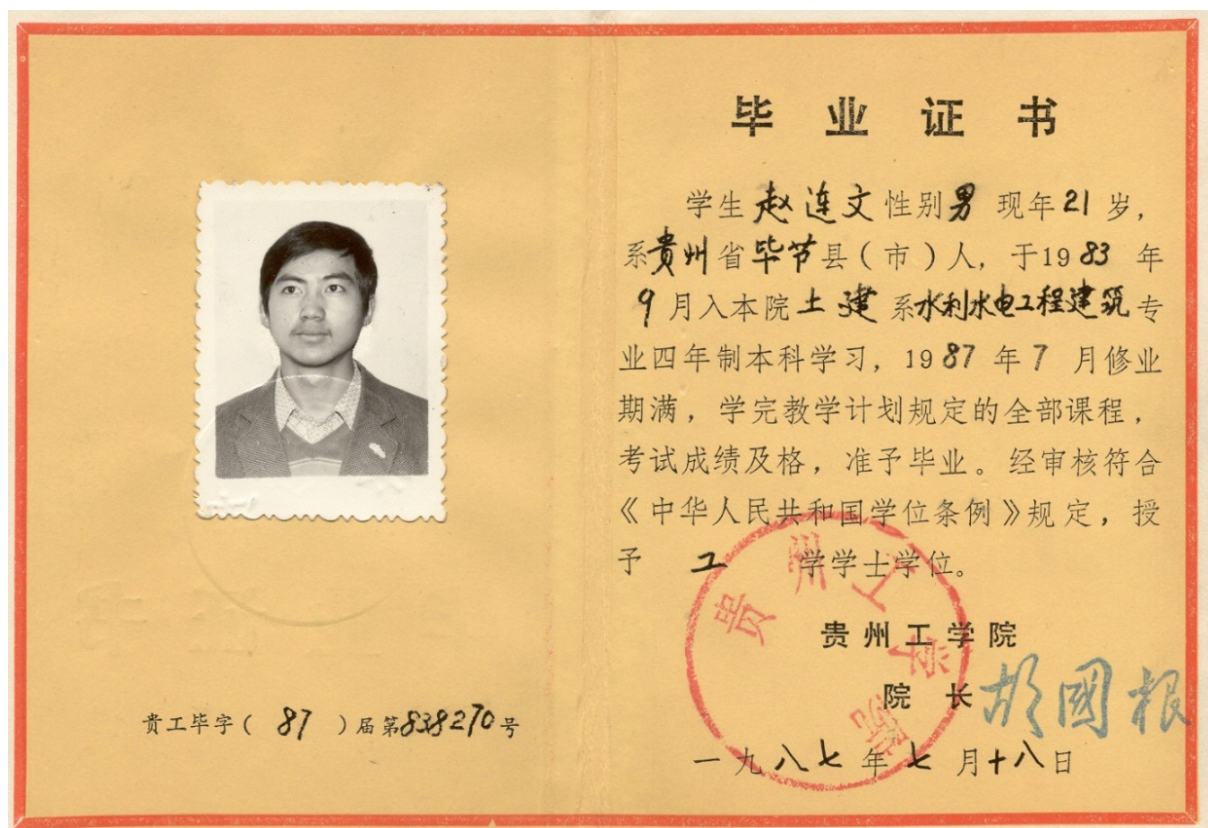 毕业证书
学生赵连文性别男现年21岁，
系贵州省毕节县（市）人，于1983年
9月入本院土建系水利水电工程建筑专
业四年制本科学习，1987年7月修业
期满，学完教学计划规定的全部课程，
考试成绩及格，准予毕业。经审核符合
《中华人民共和国学位条例》规定，授
予工学学士学位。
贵州工学院
院长胡國根
一九八七年七月十八日
贵州工学院
贵工毕字（87）届第838270号